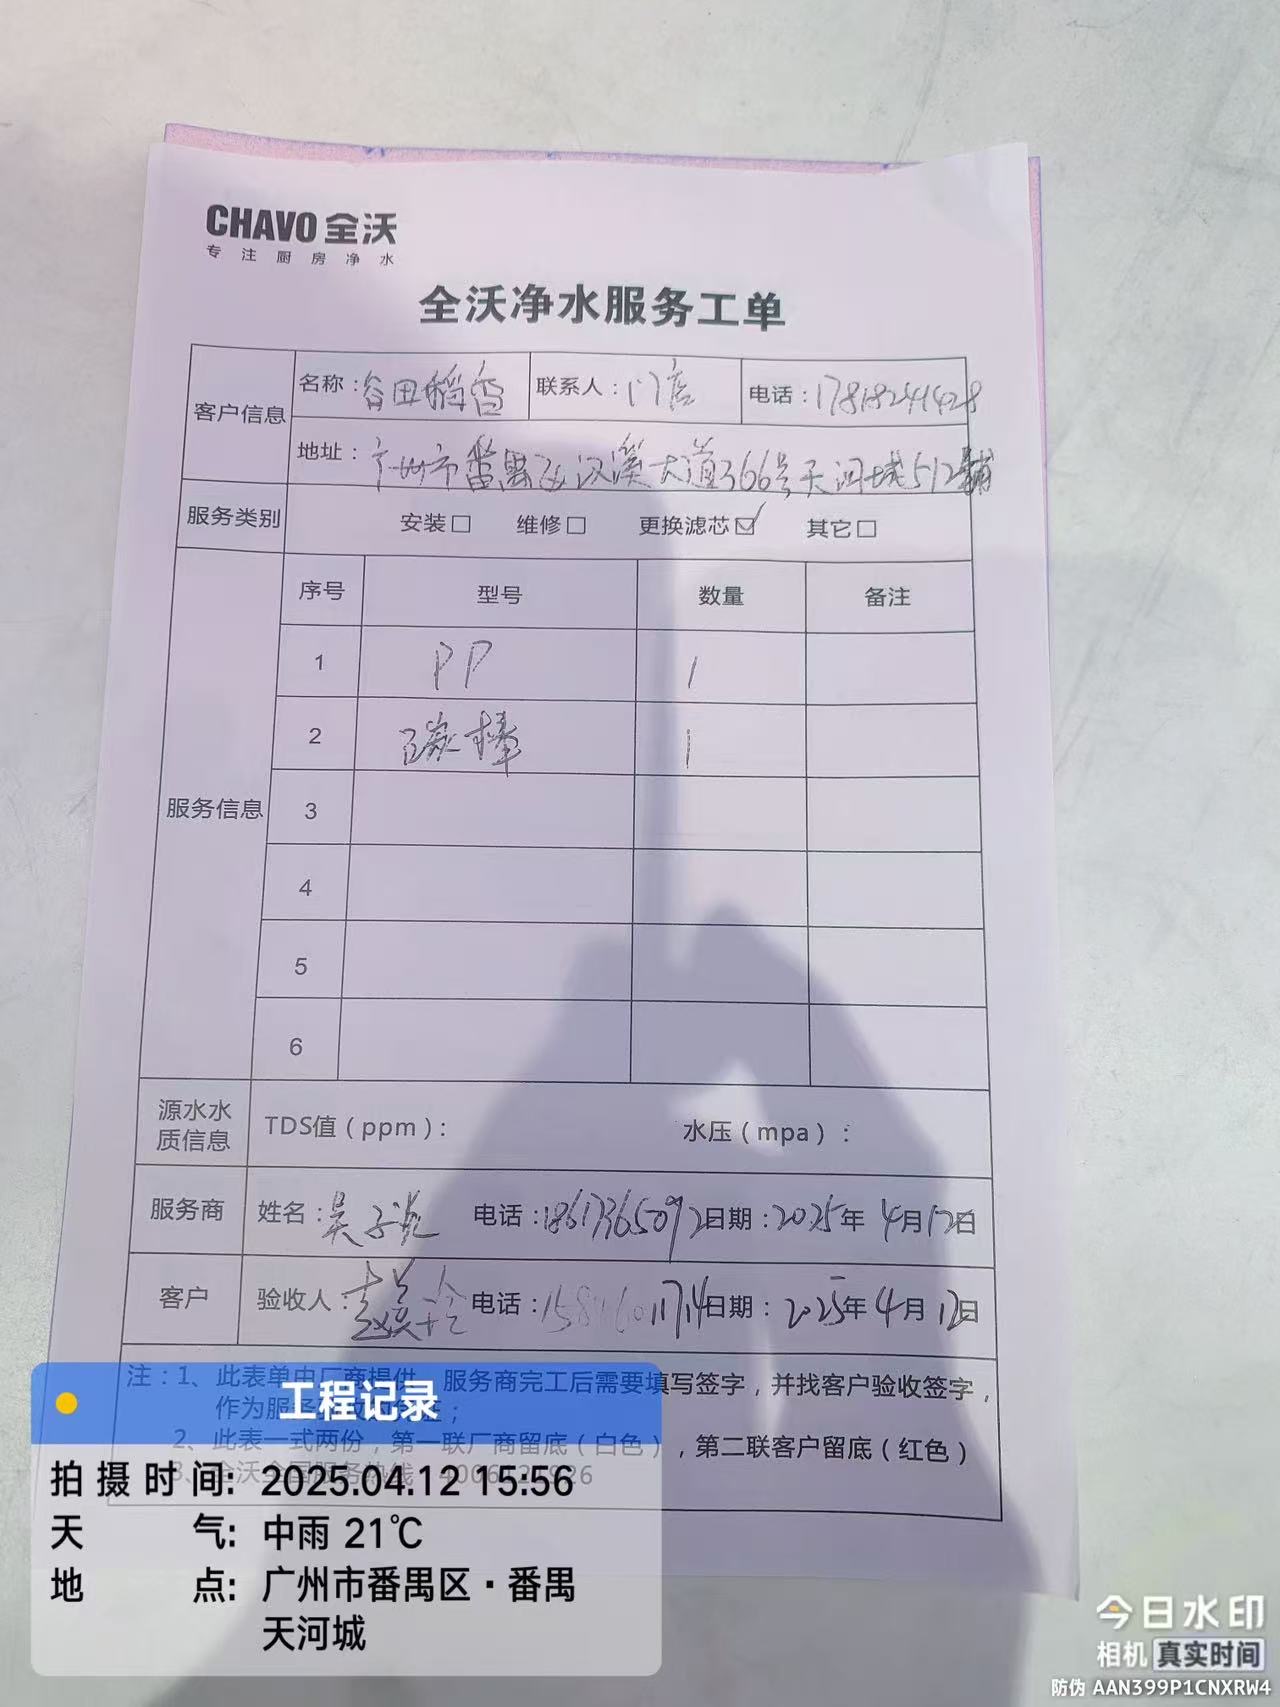 CHAVO 全沃
专注厨房净水
全沃净水服务工单
客户信息 名称：谷田稻香 联系人：门店 电话：17818241428
地址：广州市番禺区汉溪大道366号天河城512铺
服务类别 安装□ 维修□ 更换滤芯☑ 其它□
服务信息 序号 型号 数量 备注
1 PP 1
2 碳棒 1
3
4
5
6
源水水质信息 TDS值（ppm）： 水压（mpa）：
服务商 姓名：吴子 电话：18617365092 日期：2025年4月12日
客户 验收人： 电话： 日期：2025年4月12日
注：1、此表单由厂商提供，服务商完工后需要填写签字，并找客户验收签字，
作为服务
2、此表一式两份，第一联厂商留底（白色），第二联客户留底（红色）
3、全沃全国服务热线
工程记录
拍摄时间：2025.04.12 15:56
天气：中雨 21℃
地点：广州市番禺区·番禺
天河城
今日水印
相机 真实时间
防伪 AAN399P1CNXRW4